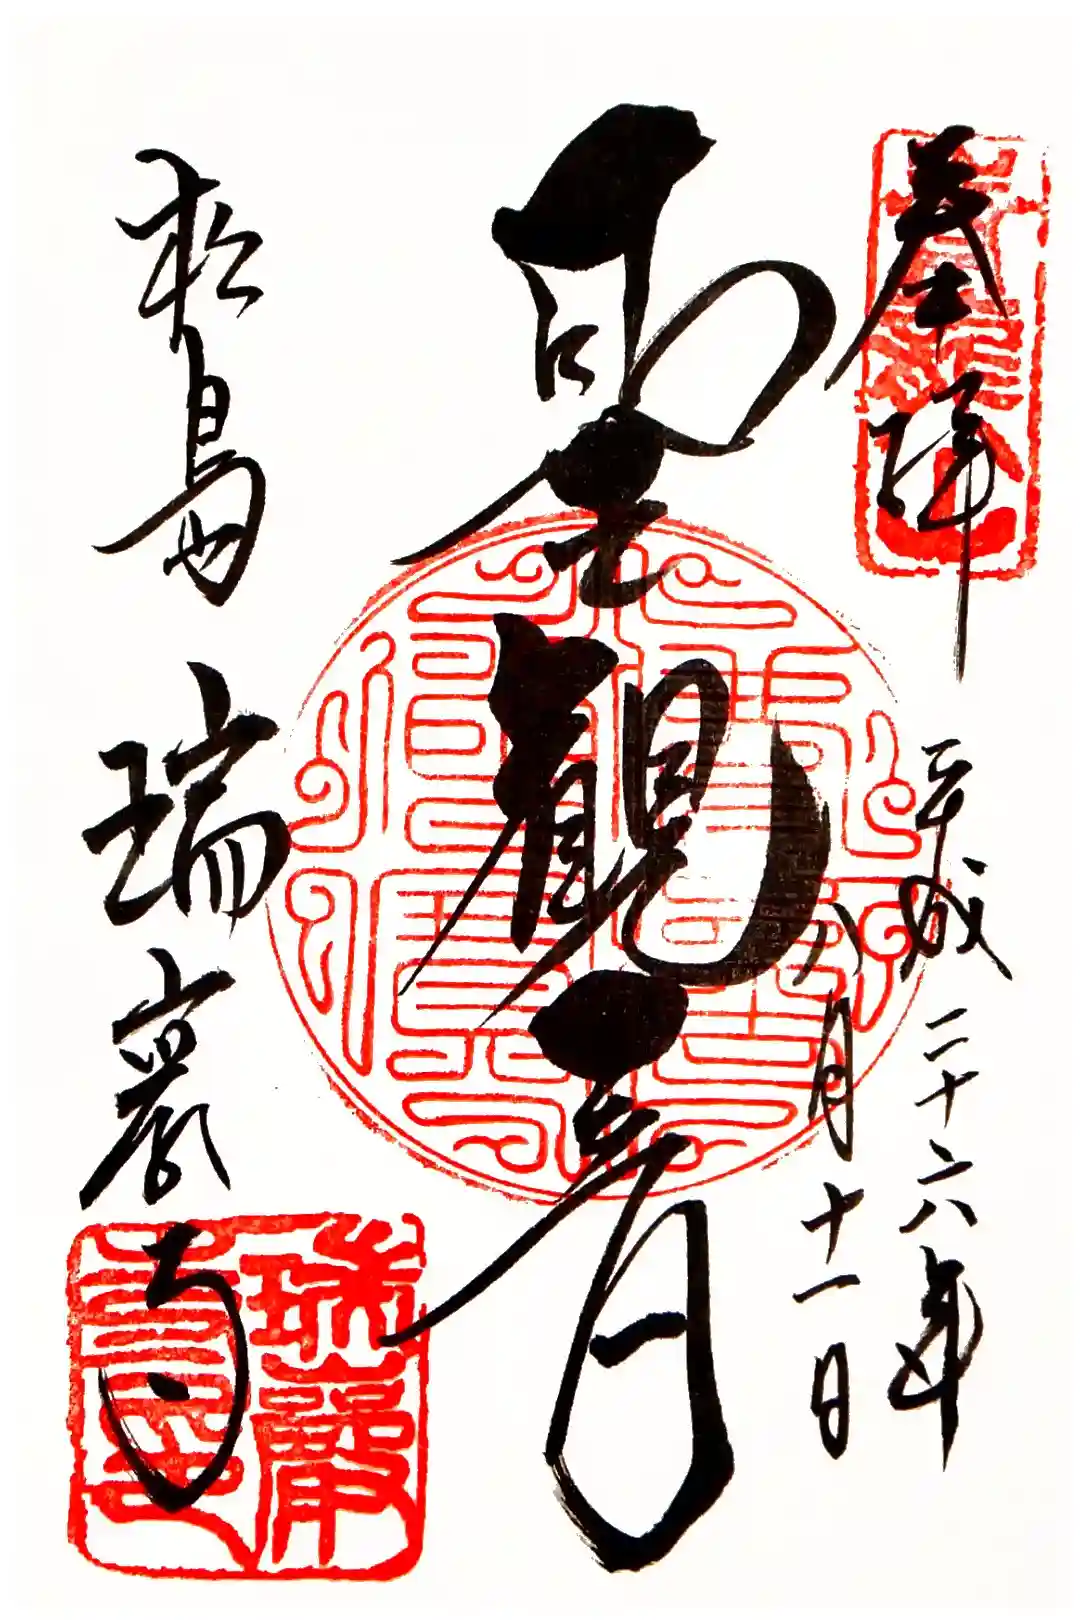 奉拝
平成二十六年
八月十一日
聖観音
松島 瑞巌寺
瑞巌